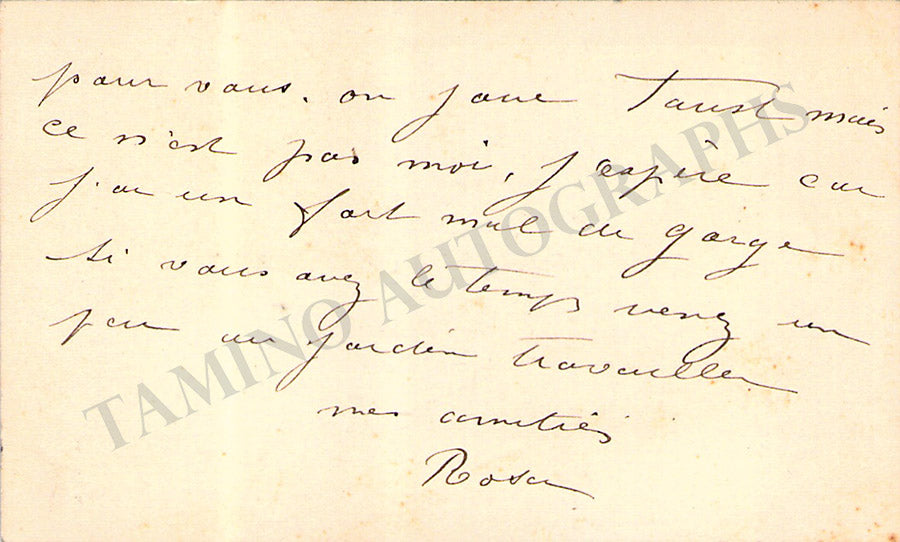 pour vous. on joue Faust mais
ce n'est pas moi, j'espère car
j'ai un fort mal de gorge
si vous avez le temps venez un
peu au jardin travailler
mes amitiés
Rosa
TAMINO AUTOGRAPHS